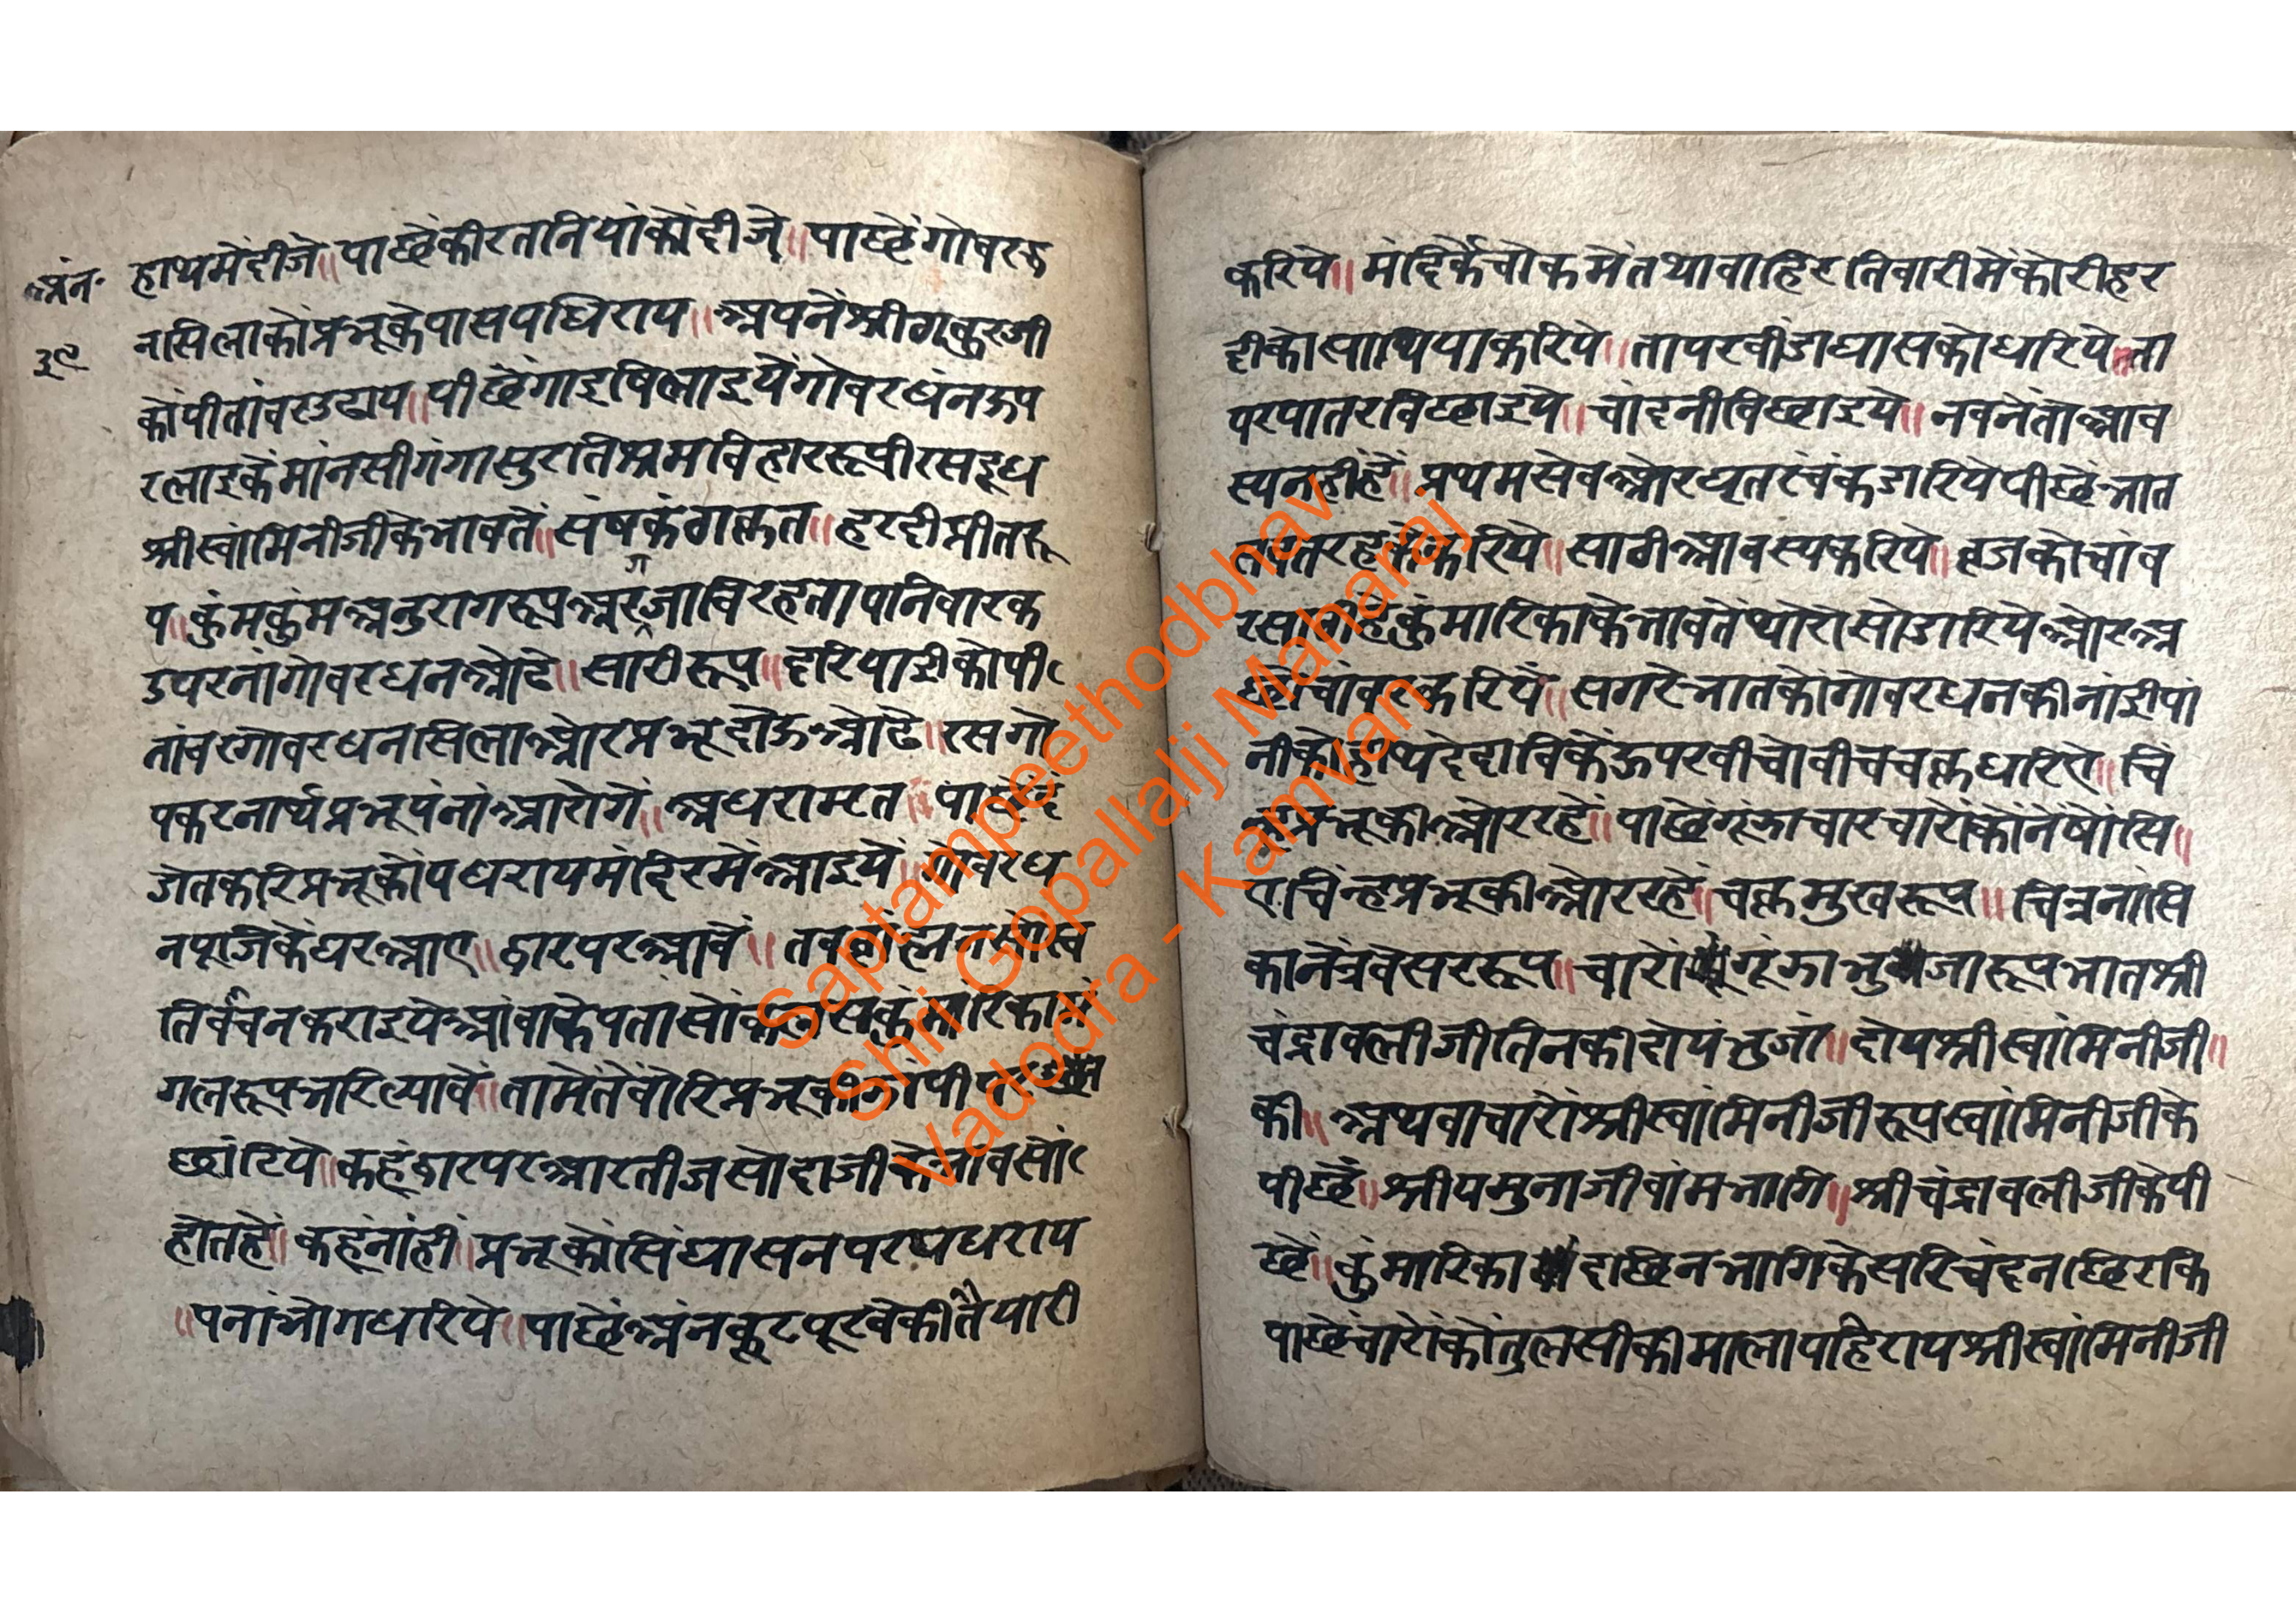 अंन॰
३९
हाथमेंदीजे॥पाछेंकीरतानियांकोंदीजे॥पाछेंगोवरध
नसिलाकोंप्रभूकेपासपधिराय॥अपनेंश्रीठाकुरजी
कोंपीतांवरउढाय॥पीछेंगाइषिलाइयेंगोवरधंनऊप
रलाइकेंमांनसीगंगासुरातिश्रमविहाररूपीरसदूध
श्रीस्वांमिनीजीकेभावतें॥संषकंठाक्रत॥हरदीप्रीतरू
प॥कुंमकुंमअनुरागरूपअरगजाविरहतापनिवारक
उपरनांगोवरधनओढे॥सारीरूप॥हरिपाडीकोपी
तांवरगोवरधनसिलाओरप्रभूदोऊओढे॥रसगो
पकरनार्थप्रभूपंनांआरोगें॥अधराम्रत
डोतकरिप्रभूकोंपधरायमंदिरमेंआइयें॥गोवरध
नपूजिकेंघरआए॥द्वारपरआवें॥
गलरूपभरिल्यावें॥तामेंतेंवारिप्रभूकी
छांटिये॥कहूंद्वारपरआरतीजसोदाजीकेभावसों
होतहे॥कहूंनांही॥प्रभूकोंसिंघासनपरपधराय
॥पनांभोगधरिये॥पाछेंअंनकूटपूरवेकीतैयारी
करिये॥मंदिरकेचोकमेंतथावाहिरतिवारीमेंकोरीहर
दीकोसाथियाकरिये॥तापरवींडाघासकोधरिये॥ता
परपातरविछाइये॥चांदनीविछाइये॥नवनेतोआव
स्यनहीहें॥प्रथमसेवओरघृतरंचंकडारियेपीछेंभात
करिये॥साठीआवस्यकरिये॥व्रजकोचांव
कुंमारिकाकेभावतेंथोरोसोडारियेओरअ
चांवरकरियें॥सगरेभातकोंगोवरधनकीनांईपां
नीकोहाथदेदाविकेंऊपरवीचोवीचचक्रधरिए॥चि
पाछेंगूंझाचारचारोंकोंनेंषोंसि॥
एचिंन्हप्रभूकीओररहे॥चक्रमुखरूप॥चिंन्नांसि
कानेंत्रवेसररूप॥चारोंगूंझाभुजारूपभातश्री
चंद्रावलीजीतिनकीदोयभुजा॥दोयश्रीस्वांमिनीजी॥
की॥अथवाचारोंश्रीस्वांमिनीजीरूपस्वांमिनीजीके
पीछें॥श्रीयमुनाजीवांमभागि॥श्रीचंद्रावलीजीकेपी
छें॥कुंमारिकादाछिनभागिकेसरिचंदनछिरकि
पाछेंचारोंकोंतुलसीकीमालापहिरायश्रीस्वांमिनीजी
Saptampeethodbhav
Shri Gopallalji Maharaj
Vadodra - Kamvan